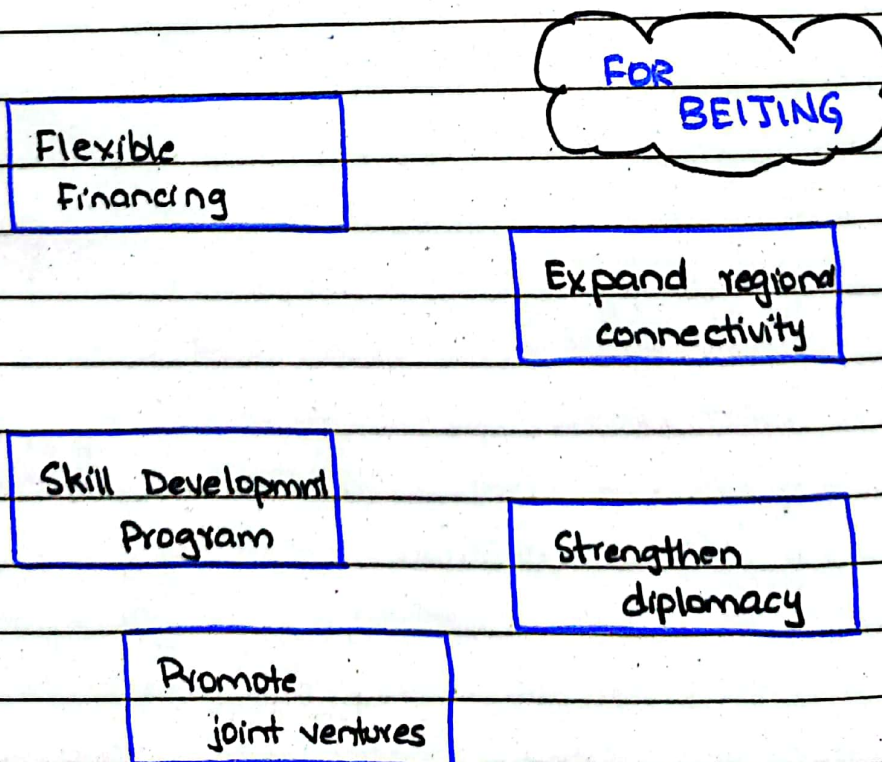 FOR
BEIJING
Flexible
Financing
Expand regional
connectivity
Skill Developmnt
Program
Strengthen
diplomacy
Promote
joint ventures